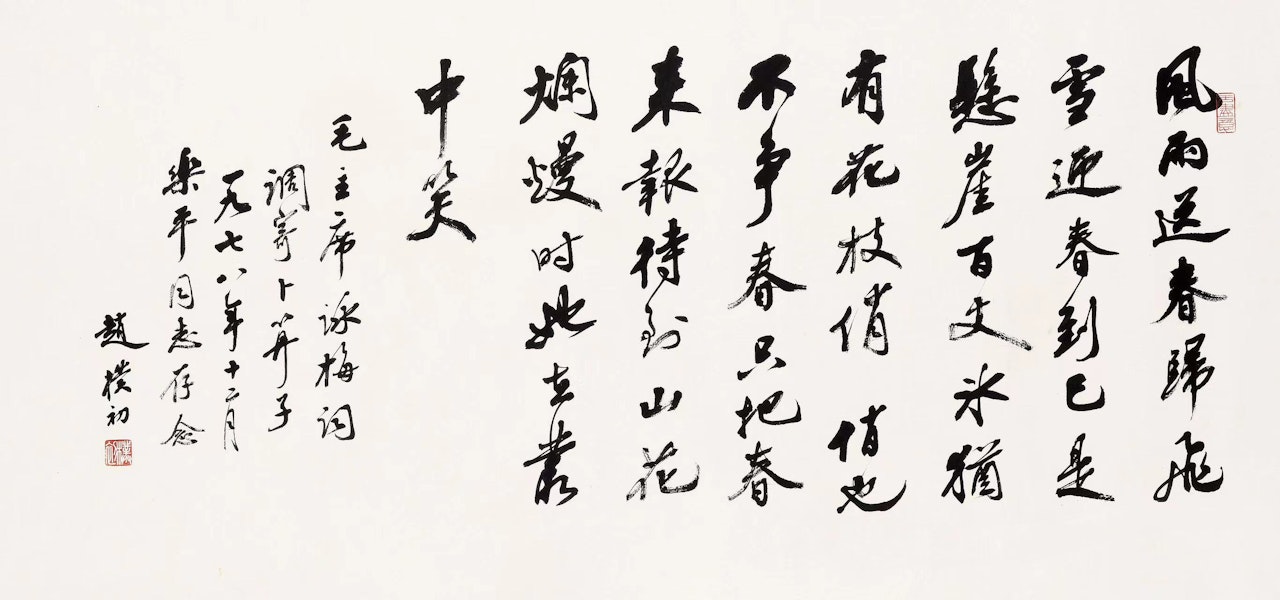 风雨送春歸飛
雪迎春到已是
懸崖百丈冰猶
有花枝俏俏也
不争春只把春
来報待到山花
爛熳时她在叢
中笑
毛主席詠梅词
调寄卜算子
一九七八年十二月
樂平同志存念
趙樸初